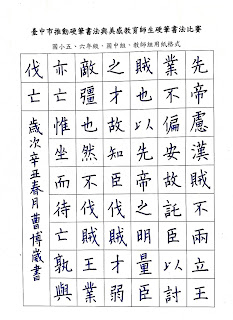 臺中市推動硬筆書法與美感教育師生硬筆書法比賽
國小五、六年級、國中組、教師組用紙格式
先帝慮漢賊不兩立王
業不偏安故託臣以討
賊也以先帝之明量臣
之才故知臣伐賊才弱
敵彊也然不伐賊王業
亦亡惟坐而待亡孰與
伐
歲次辛丑春月曹博崴書